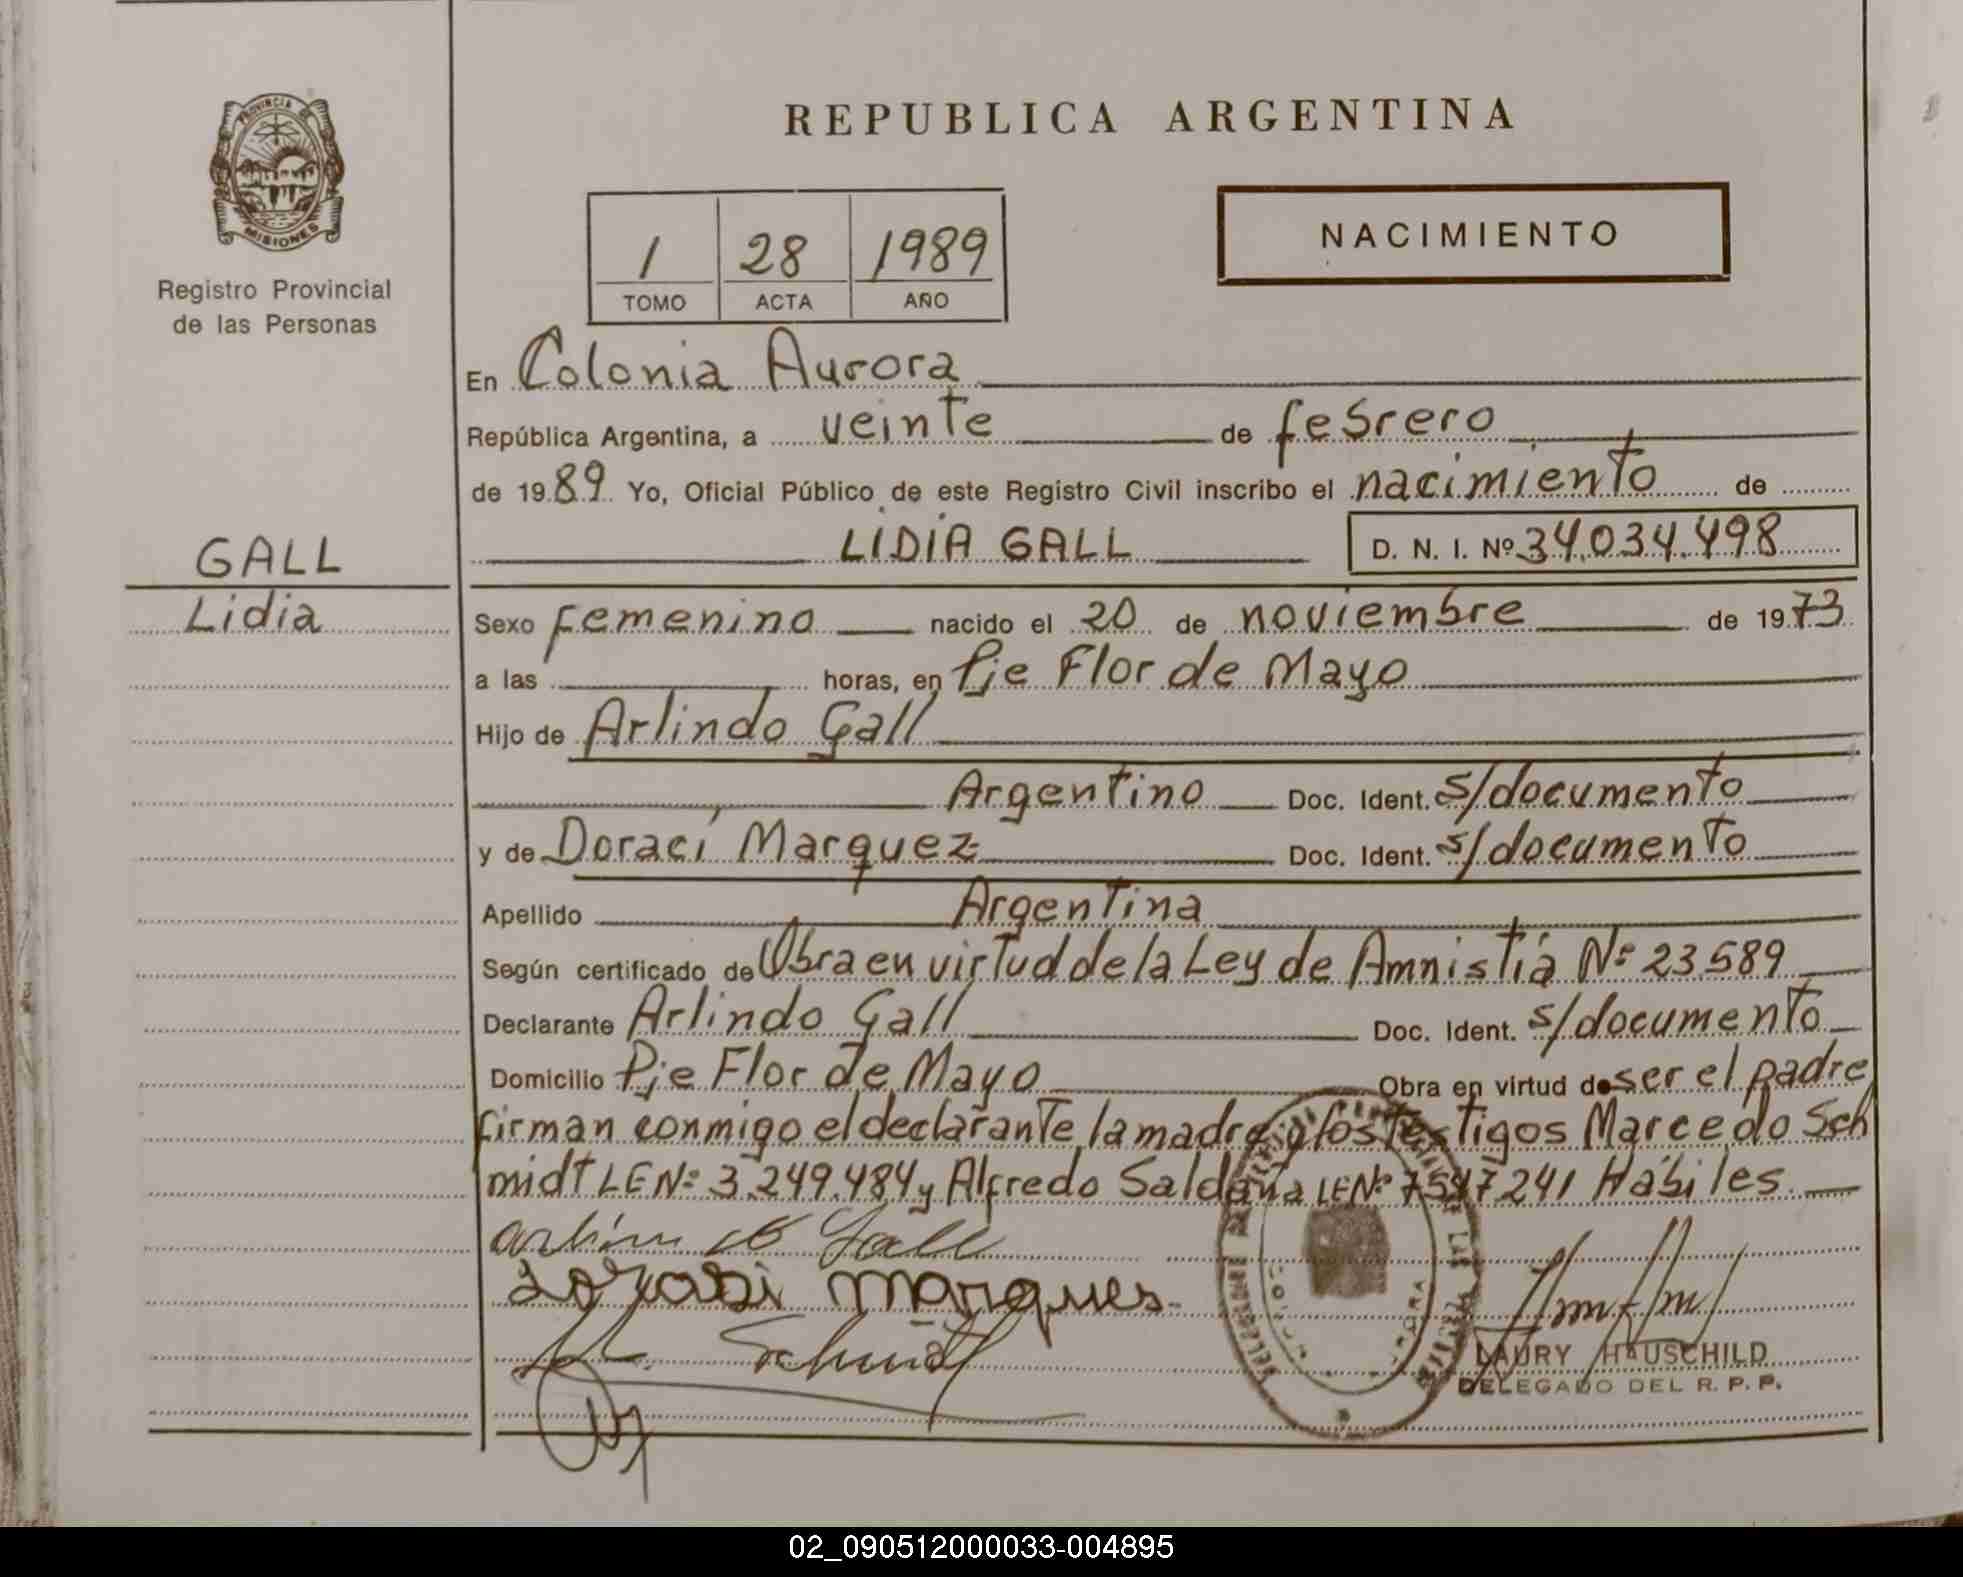 PROVINCIA DE
MISIONES
Registro Provincial
de las Personas
REPUBLICA ARGENTINA
1 28 1989
TOMO ACTA AÑO
NACIMIENTO
En Colonia Aurora
República Argentina, a veinte de febrero
de 1989 Yo, Oficial Público de este Registro Civil inscribo el nacimiento de
LIDIA GALL D. N. I. Nº 34.034.498
GALL
Lidia
Sexo femenino nacido el 20 de noviembre de 1973
a las horas, en Pje Flor de Mayo
Hijo de Arlindo Gall
Argentino Doc. Ident. s/documento
y de Doraci Marquez Doc. Ident. s/documento
Apellido Argentina
Según certificado de Obra en virtud de la Ley de Amnistía Nº 23.589
Declarante Arlindo Gall Doc. Ident. s/documento
Domicilio Pje Flor de Mayo Obra en virtud de ser el padre
firman conmigo el declarante la madre y los testigos Marcedo Sch
midt LE Nº 3.249.484 y Alfredo Saldaña LE Nº 7547241 Hábiles.
Gall
Marques
Schmidt
LAURY HAUSCHILD
DELEGADO DEL R. P. P.
02_090512000033-004895